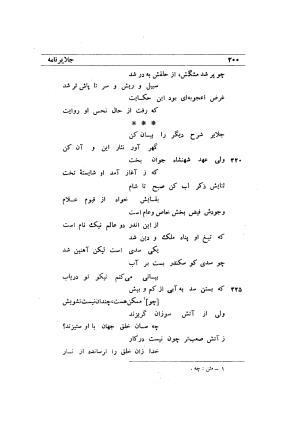 ۲۰۰ جلایرنامه
چو پر شد مشگش، از حلقش به در شد
سبیل و ریش و سر تا پاش تر شد
غرض اعجوبه‌ای بود این حکایت
که رفت از حال نحس او روایت
* * *
جلایر شرح دیگر را بیان کن
گهر آور نثار این و آن کن
۲۳۰ ولی عهد شهنشاه جوان بخت
که ز آغاز آمد او شایستهٔ تخت
ثنایش ذکر لب کن صبح تا شام
بقایش خواه از قیوم علام
وجودش فیض بخش خاص وعام است
از این اندر دو عالم نیک نام است
که تیغ او پناه ملک و دین شد
یکی سدی است لیکن آهنین شد
چو سدی کو سکندر بست بر آب
بیانی می‌کنم نیکو تو دریاب
۲۳۵ که بستن سد به آبی از کم و بیش
[چو]۱ ممکن‌هست، چندان‌نیست‌تشویش
ولی از آتش سوزان گریزند
چه سان خلق جهان با او ستیزند؟
ز آتش صعب‌تر چون نیست در کار
خدا زان خلق را ترسانده از نار
۱ - متن : چه .